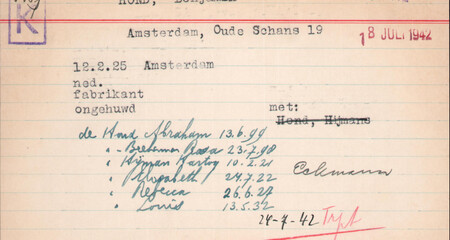 K
HOND, Benjamin
Amsterdam, Oude Schans 19
18 JULI 1942
12.2.25 Amsterdam
ned.
fabrikant
ongehuwd met:
Hond, Hijmans
de Hond Abraham 13.6.99
" - Rosa 23.7.98
" - Hijman Hartog 10.2.21
" - Elisabeth 24.7.22
" - Rebecca 26.6.27
" - Louis 13.5.32
24-7-42 Trpt